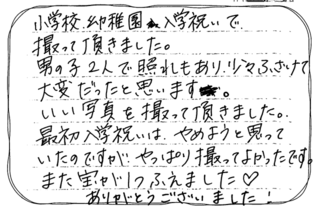 小学校、幼稚園入学祝いで
撮って頂きました。
男の子2人で照れもあり、少々ふざけて
大変だったと思います。
いい写真を撮って頂きました。
最初入学祝いは、やめようと思って
いたのですがやっぱり撮ってよかったです。
また宝が1つふえました♡
ありがとうございました！